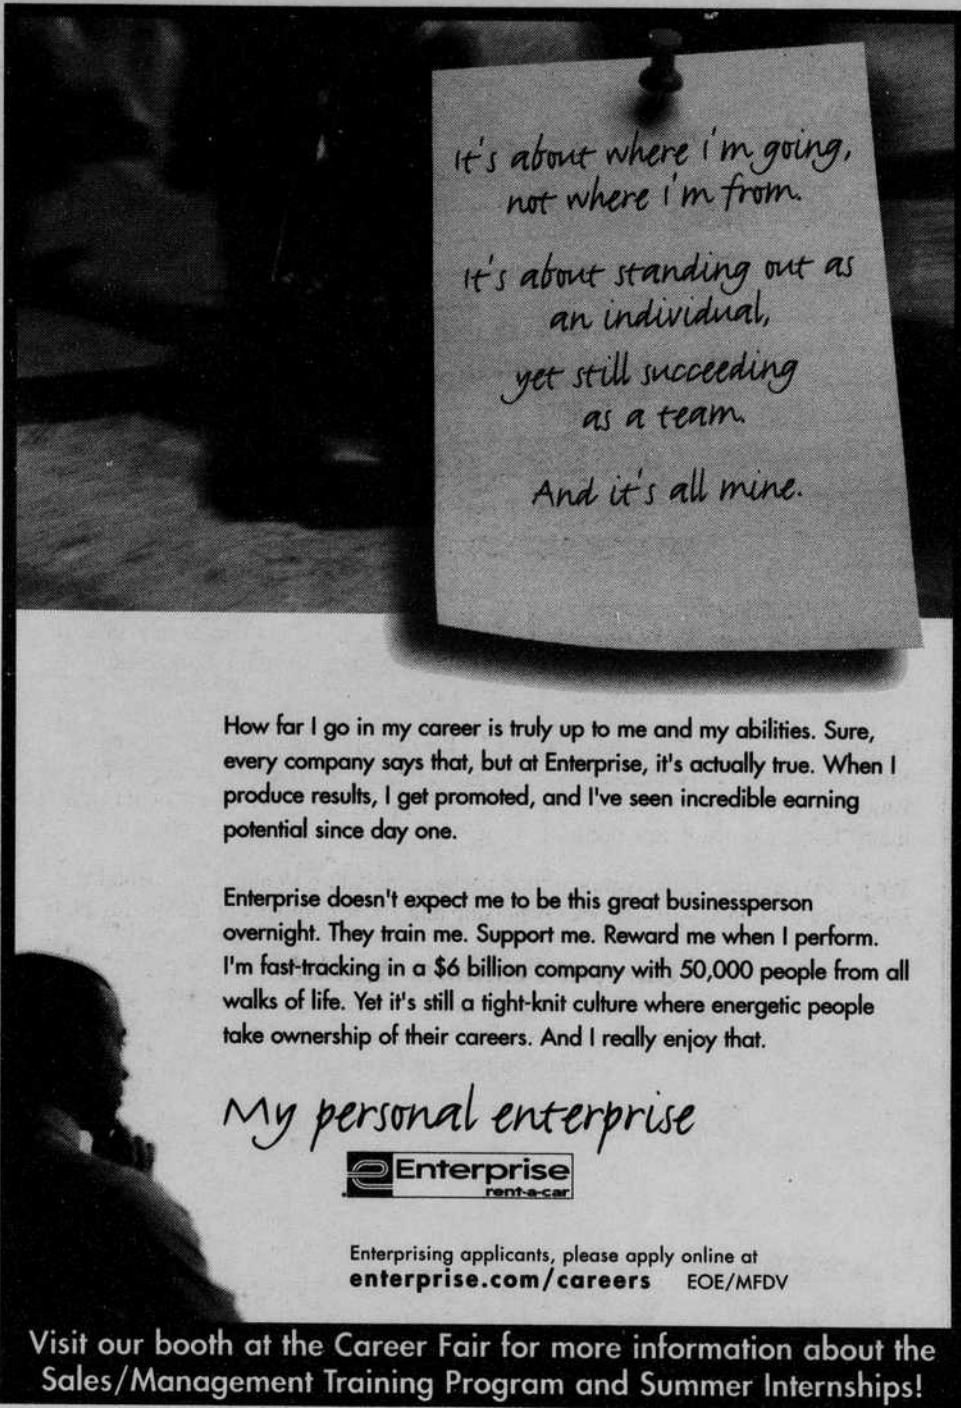 It's about where i'm going,
not where i'm from.
It's about standing out as
an individual,
yet still succeeding
as a team.
And it's all mine.
How far I go in my career is truly up to me and my abilities. Sure,
every company says that, but at Enterprise, it's actually true. When I
produce results, I get promoted, and I've seen incredible earning
potential since day one.
Enterprise doesn't expect me to be this great businessperson
overnight. They train me. Support me. Reward me when I perform.
I'm fast-tracking in a $6 billion company with 50,000 people from all
walks of life. Yet it's still a tight-knit culture where energetic people
take ownership of their careers. And I really enjoy that.
My personal enterprise
Enterprise
rent-a-car
Enterprising applicants, please apply online at
enterprise.com/careers EOE/MFDV
Visit our booth at the Career Fair for more information about the
Sales/Management Training Program and Summer Internships!